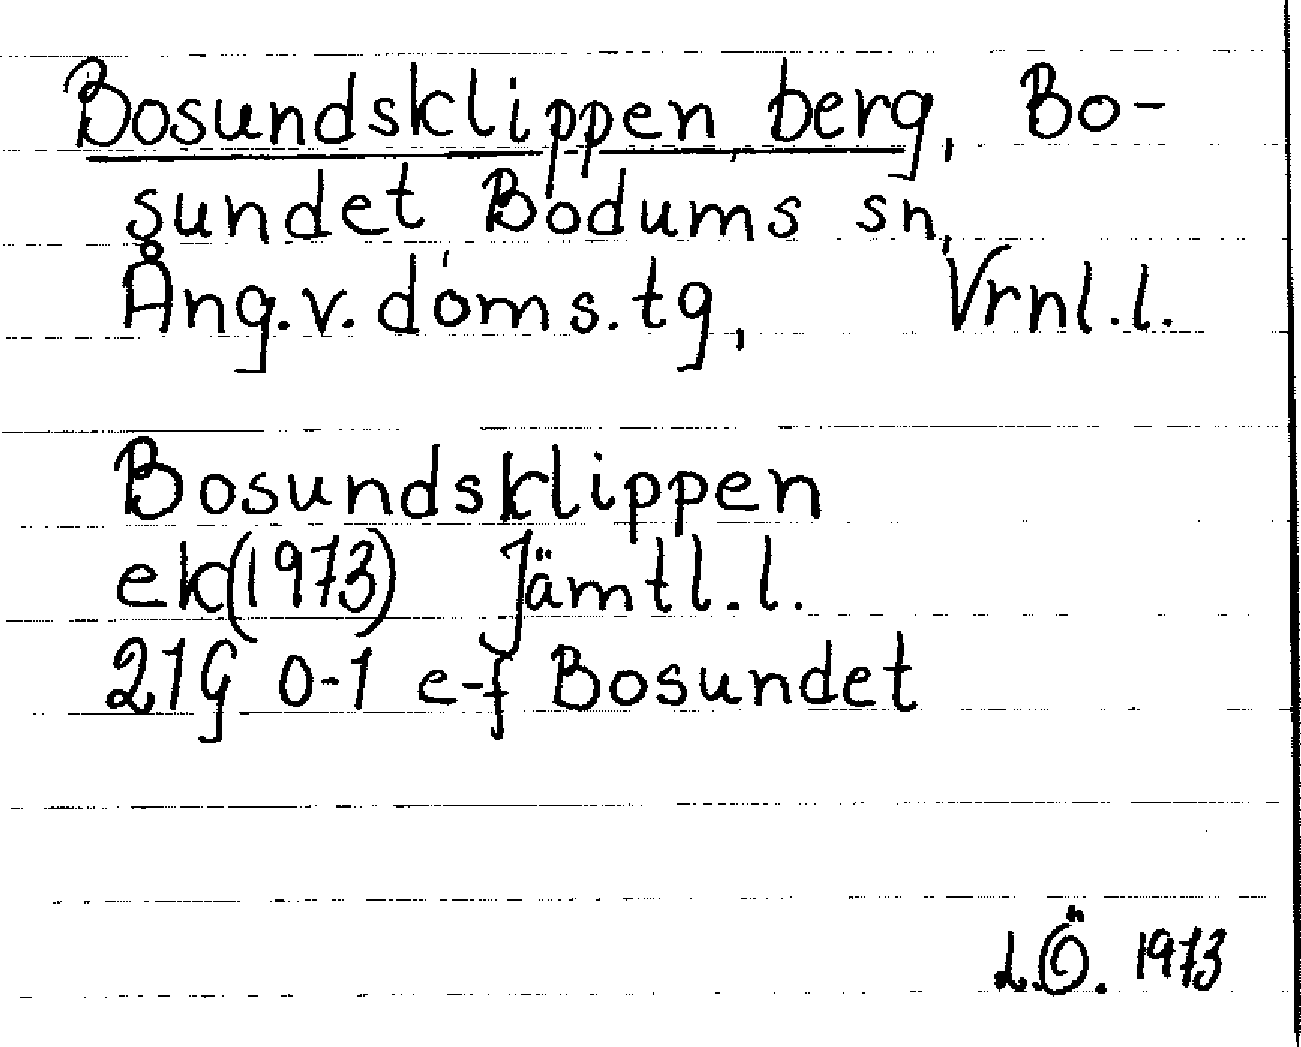 Bosundsklippen berg, Bo-
sundet Bodums sn,
Ång.v. doms.tg, Vrnl.l.
Bosundsklippen
ek(1973) Jämtl.l.
21G 0-1 e-f Bosundet
L.Ö. 1973